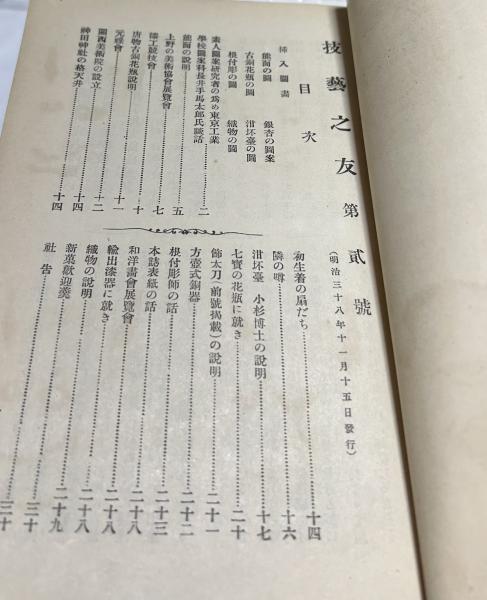 技藝之友 第貳號
(明治三十八年十一月十五日發行)
目次
挿入圖畫
能面の圖 銀杏の圖案
古銅花瓶の圖 泔坏臺の圖
根付彫の圖 織物の圖
素人圖案研究者の爲め東京工業
學校圖案科長井手馬太郎氏談話 二
能面の說明 五
上野の美術協會展覽會 七
漆工競技會 十
唐物古銅花瓶說明 十一
元祿會 十二
關西美術院の設立 十四
神田神社の格天井 十四
初生着の扇だち 十四
隣の噂 十六
泔坏臺 小杉博士の說明 十七
七寶の花瓶に就き 二十
飾太刀(前號揭載)の說明 二十一
方壺式銅器 二十二
根付彫師の話 二十三
本誌表紙の話 二十八
和洋畫會展覽會 二十八
輸出漆器に就き 二十八
織物の說明 二十九
新菓歡迎羹 三十
社告 三十